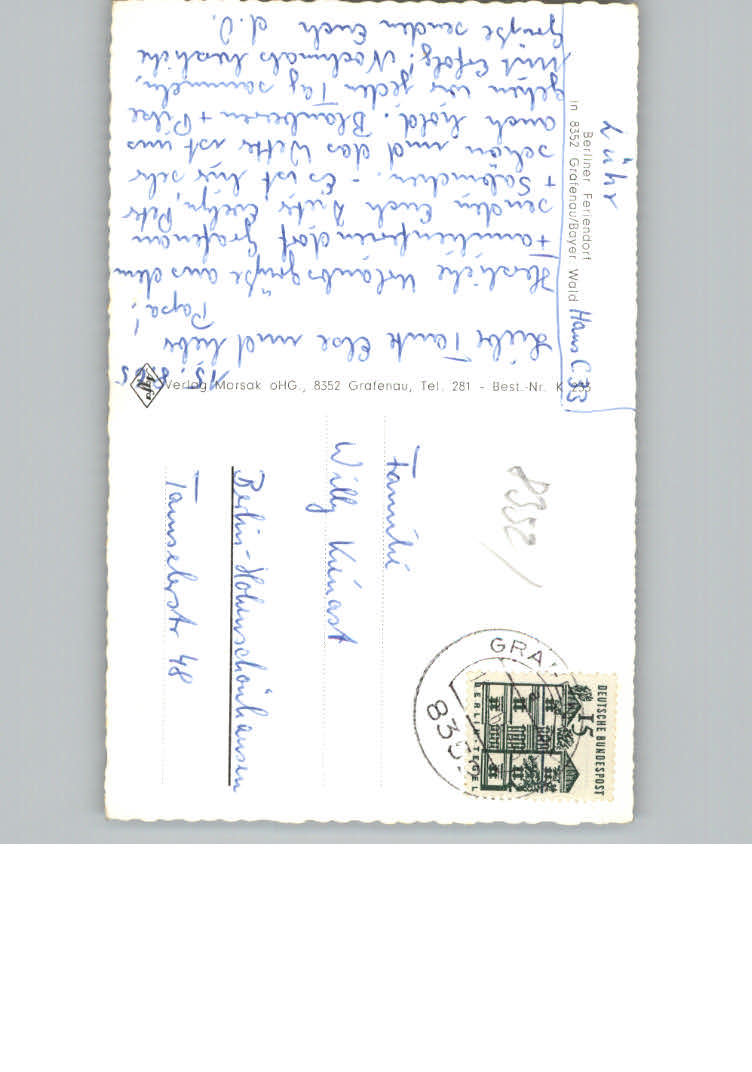 15. 8. 65
Liebe Tante Else und lieber
Papa!
Herzliche Urlaubsgrüße aus dem
Familienferiendorf Grafenau
senden Euch Dieter, Evelyn, Peter
+ Sabinchen. – Es ist hier sehr
schön und das Wetter ist uns
auch hold. Blaubeeren + Pilze
gehen wir jeden Tag sammeln,
Mit Erfolg! Nochmals herzliche
Grüße senden Euch d. O.
Lühr
Berliner Feriendorf
in 8352 Grafenau/Bayer. Wald
Haus C 33
Verlag Marsak oHG., 8352 Grafenau, Tel. 281 - Best.-Nr. K
Agfa
8352
Familie
Willy Kienast
Berlin-Hohenschönhausen
Tamselerstr 48
GRA
835
DEUTSCHE BUNDESPOST
15
BERLIN-TEGEL